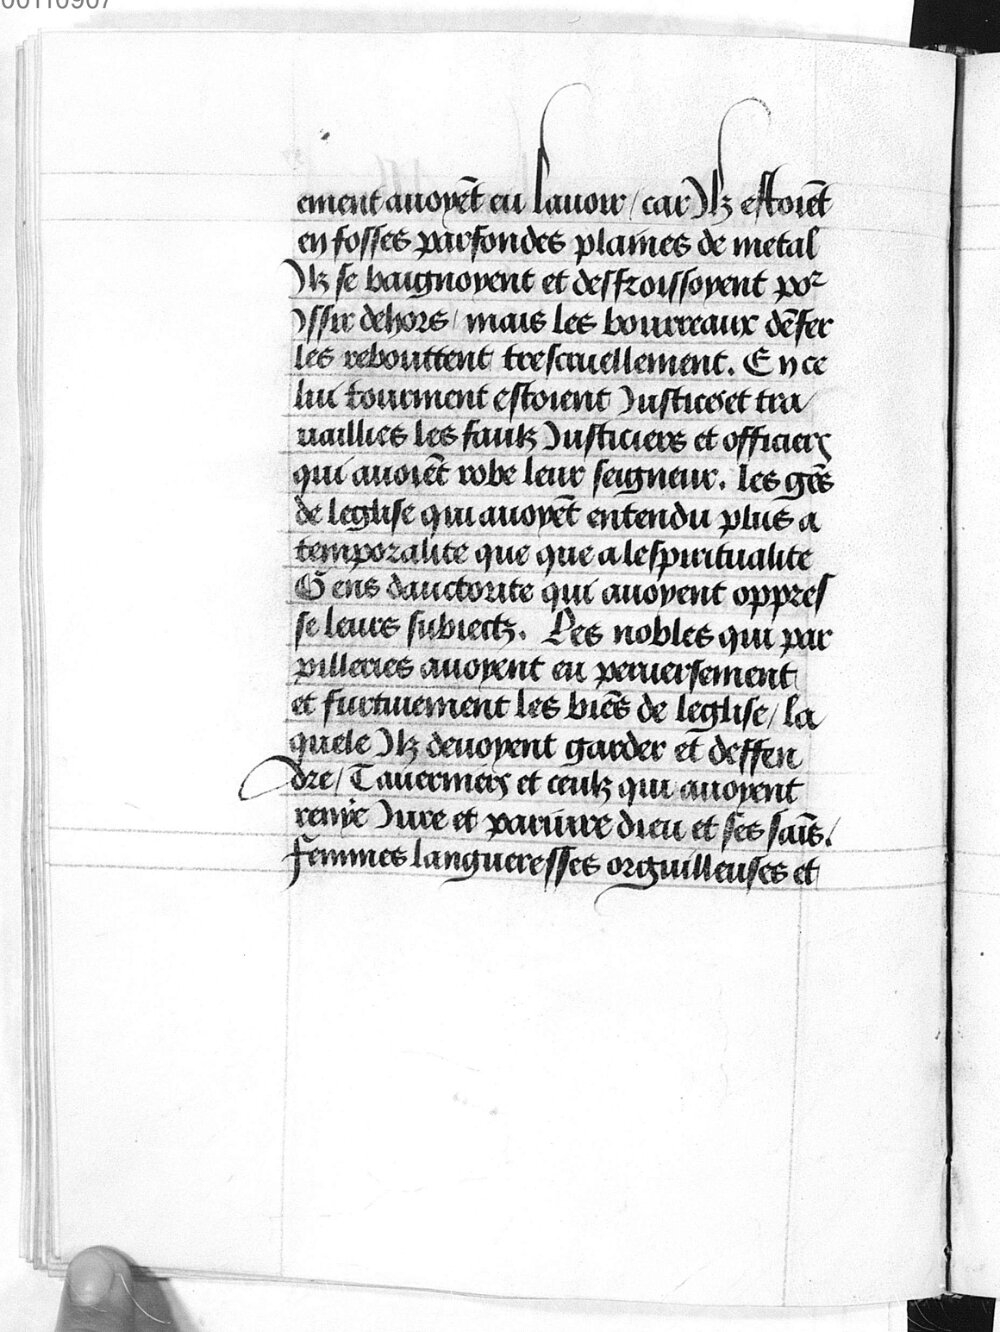 00110907
ement auoyẽt eu lauoir / car Jlz estoiẽt
en fosses parfondes plaines de metal
Jlz se baignoyent et desfroissoyent por
Jssir dehors / mais les bourreaux dẽfer
les rebouttent trescruellement. En ce
lui tourment estoient Justices et tra/
uaillies les faulz Justiciers et officiers
qui auoiẽt robe leur seigneur. les gẽs
de leglise qui auoyẽt entendu plus a
temporalite que que a lespiritualite
Gens dauctorite qui auoyent oppres
se leurs subiectz. Les nobles qui par
pilleries auoyent eu peruersement
et furtiuement les biẽs de leglise / la
quele Jlz deuoyent garder et deffen
dre / Tauerniers et ceulz qui auoyent
renye Jure et pariure dieu et ses saĩs.
femmes langueresses orguilleuses et